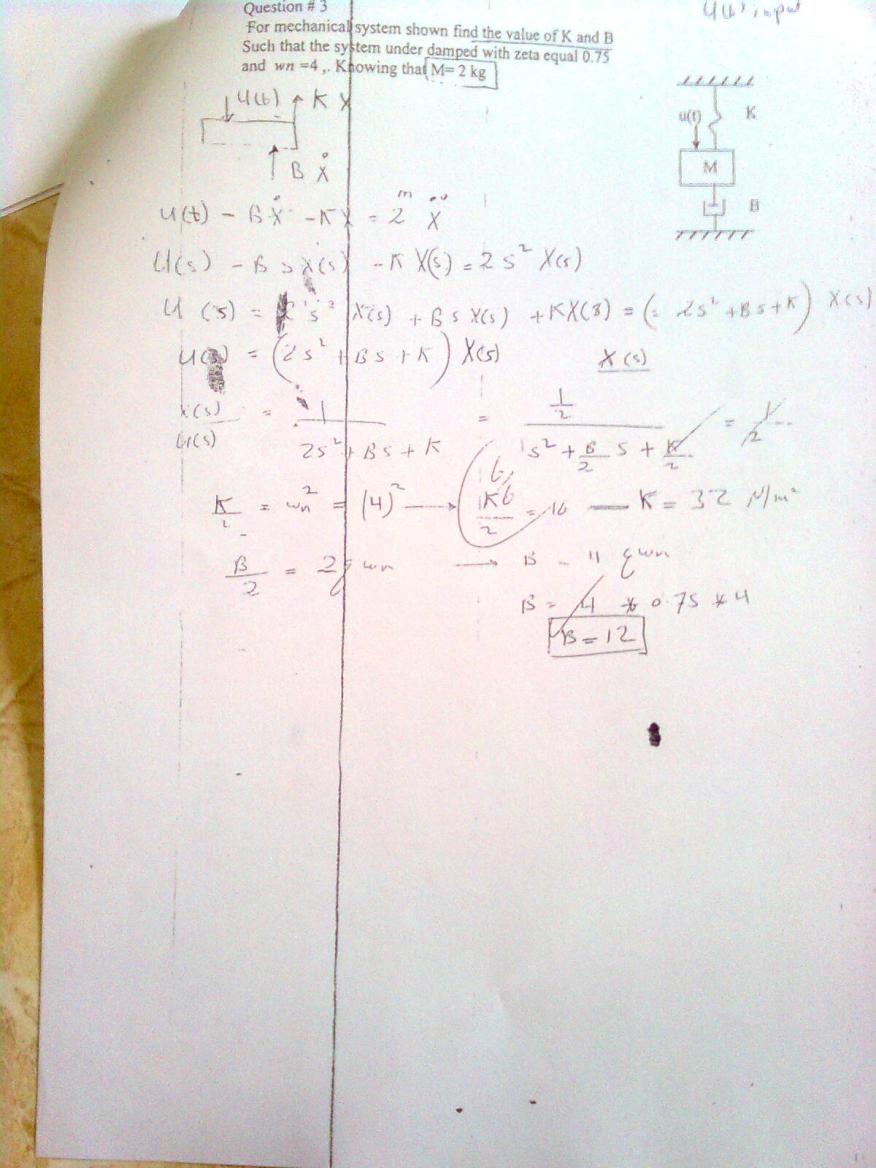 Question # 3
U(t) input
For mechanical system shown find the value of K and B
Such that the system under damped with zeta equal 0.75
and wn =4 ,. Knowing that M= 2 kg
U(t) K X
B Ẋ
u(t) K
M
B
U(t) - BẊ - KX = 2 Ẍ
m
U(s) - B s X(s) - K X(s) = 2 s² X(s)
U (s) = s² X(s) + B s X(s) + KX(s) = ( 2s² + Bs + K ) X(s)
U = (2s² + Bs + K) X(s) X(s)
X(s) / U(s) = 1 / 2s² + Bs + K = 1/2 / 1s² + B/2 s + K/2 = 1/2
K = wn² = (4)² → K/2 = 16 — K = 32 N/m²
B/2 = 2 ζ wn → B = 4 ζ wn
B = 4 * 0.75 * 4
B = 12